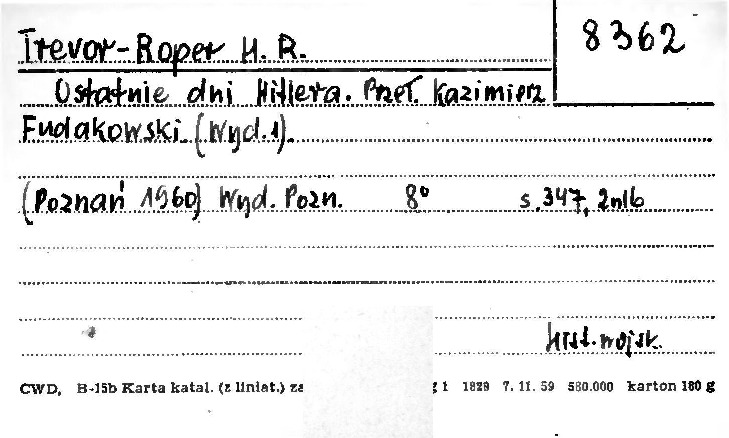 Trevor-Roper H. R.
8362
Ostatnie dni Hitlera. Przeł. Kazimierz
Fudakowski (Wyd. 1).
(Poznań 1960) Wyd. Pozn. 8° s. 347, 2nlb
Hist. wojsk.
CWD, B-15b Karta katal. (z liniat.) za g 1 1829 7. 11. 59 580.000 karton 180 g